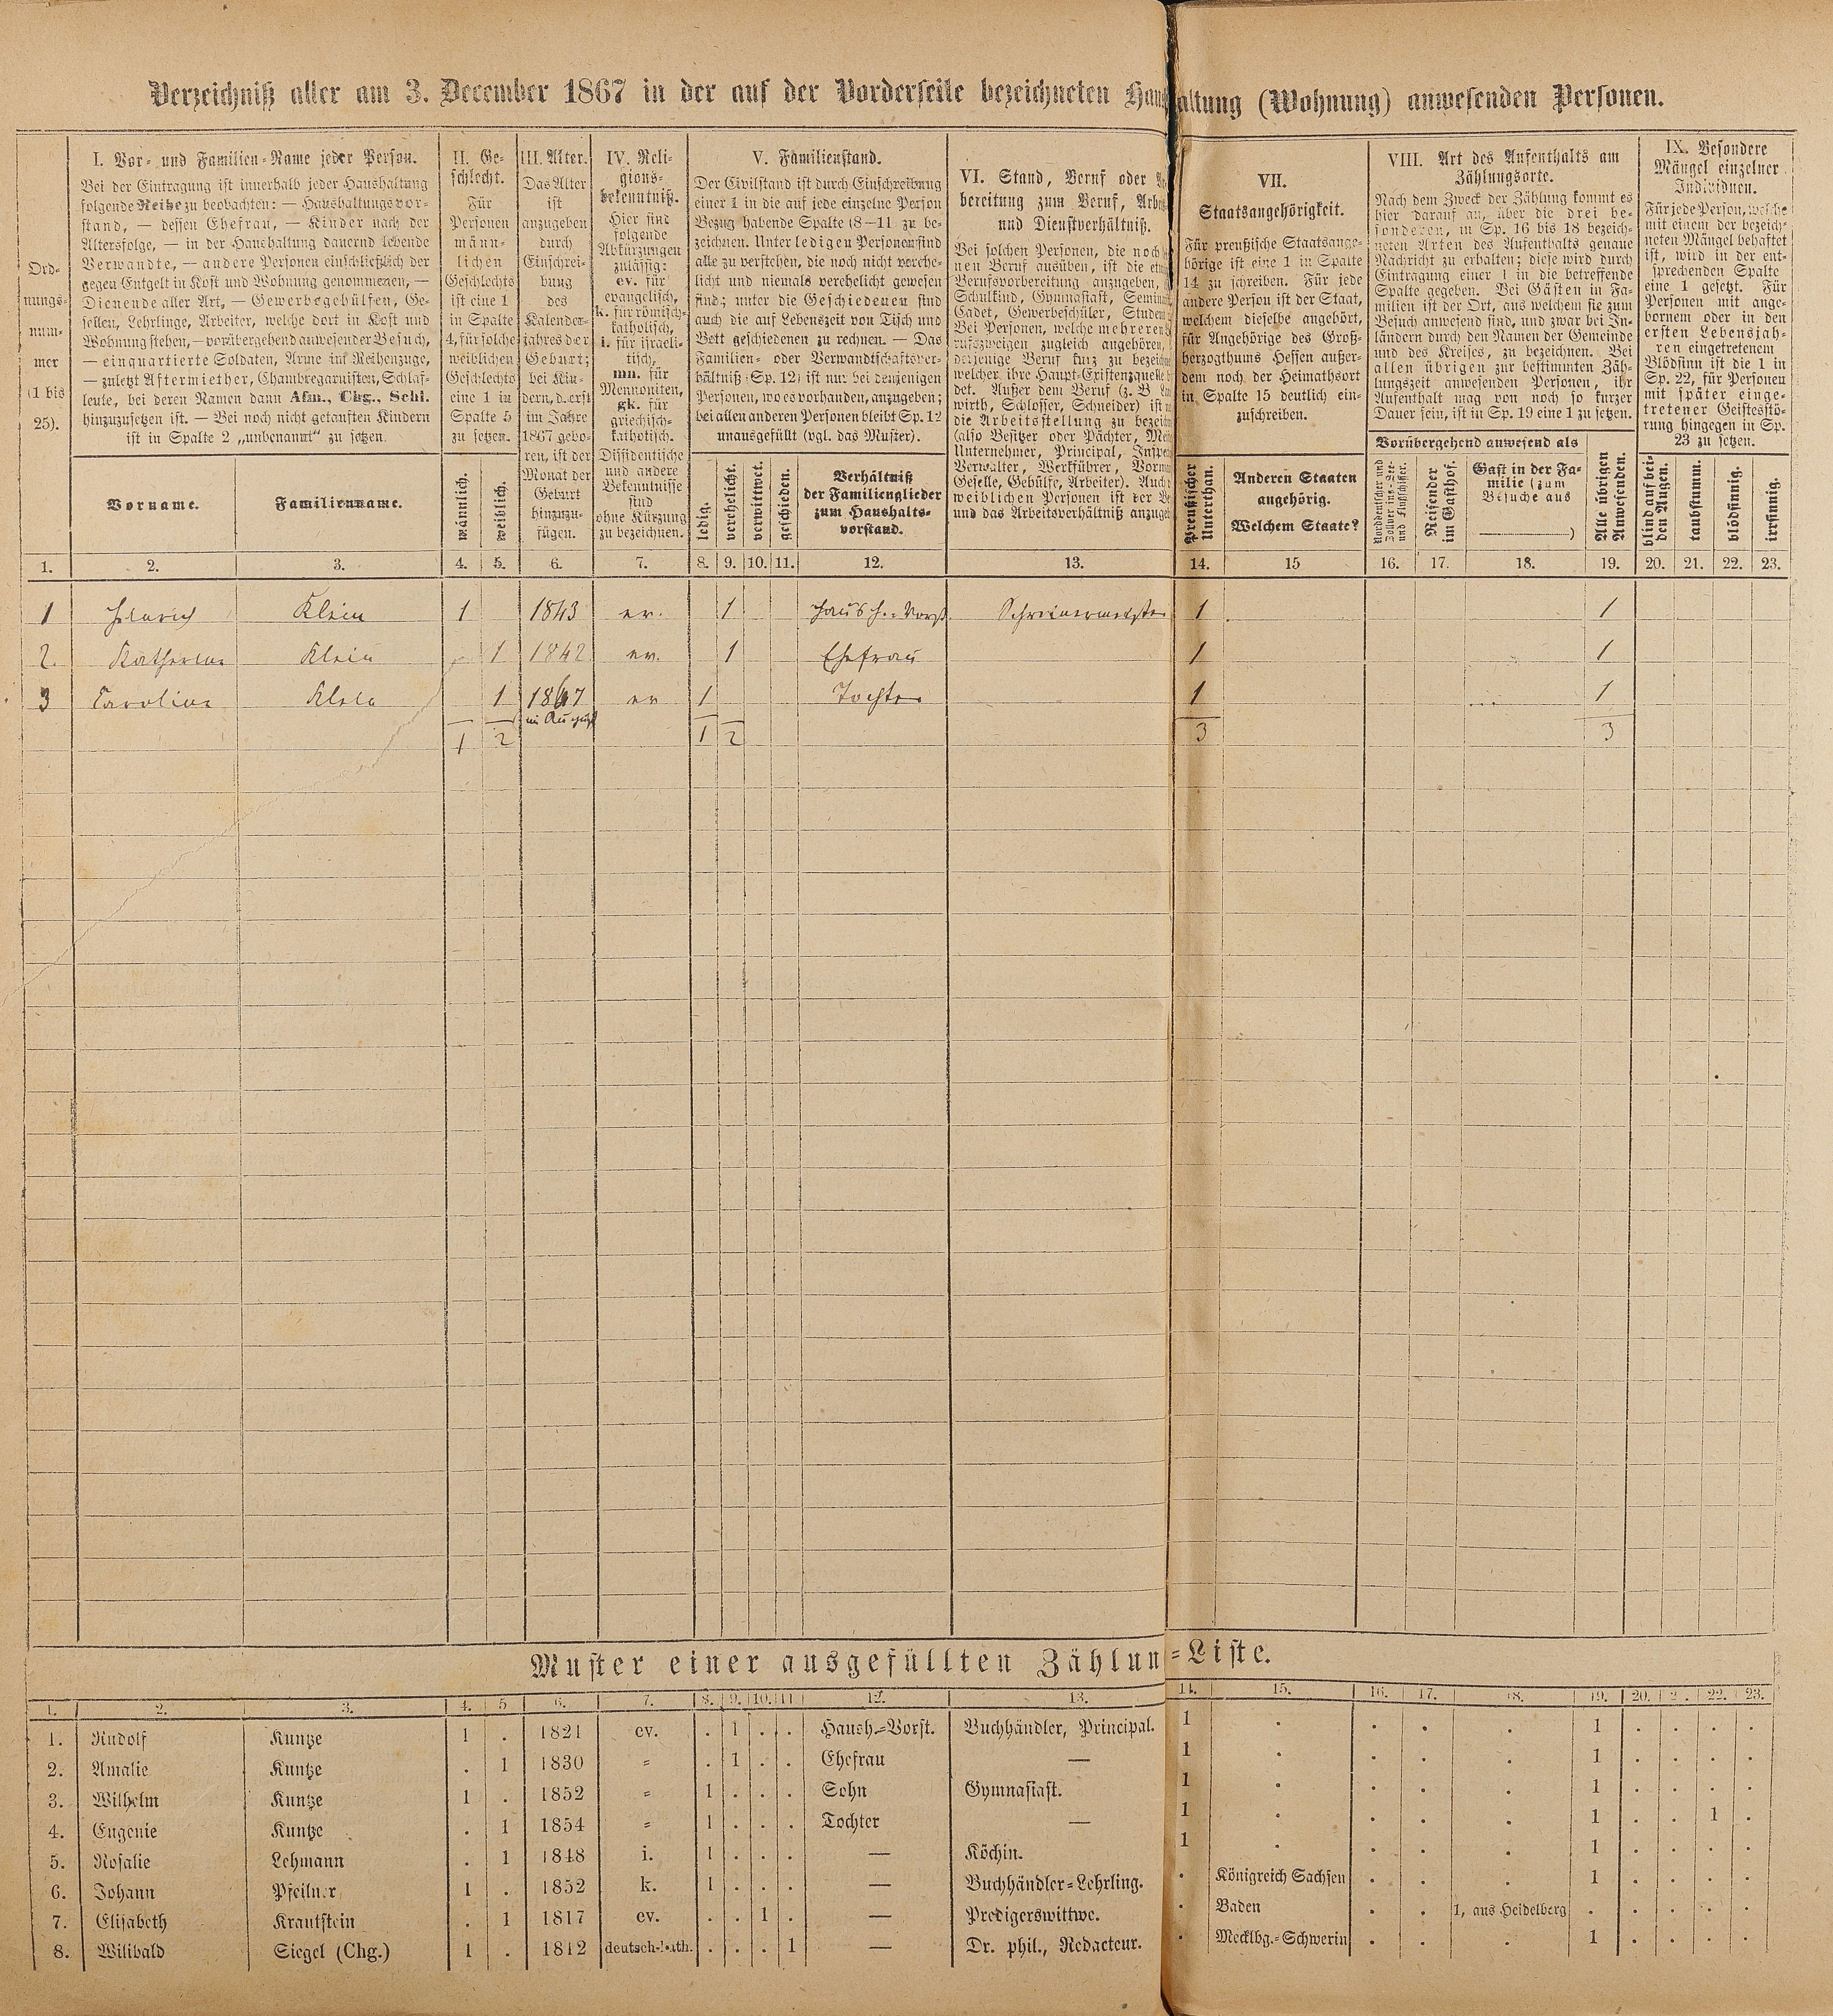 Verzeichniß aller am 3. December 1867 in der auf der Vorderseite bezeichneten Haushaltung (Wohnung) anwesenden Personen.
Ord-
nungs-
num-
mer
(1 bis
25).
I. Vor- und Familien-Name jeder Person.
Bei der Eintragung ist innerhalb jeder Haushaltung
folgende Reihe zu beobachten: — Haushaltungsvor-
stand, — dessen Ehefrau, — Kinder nach der
Altersfolge, — in der Haushaltung dauernd lebende
Verwandte, — andere Personen einschließlich der
gegen Entgelt in Kost und Wohnung genommenen, —
Dienende aller Art, — Gewerbsgehülfen, Ge-
sellen, Lehrlinge, Arbeiter, welche dort in Kost und
Wohnung stehen, — vorübergehend anwesender Besuch,
— einquartierte Soldaten, Arme im Reihenzuge,
— zuletzt Aftermiether, Chambregarnisten, Schlaf-
leute, bei deren Namen dann Afm., Chg., Schl.
hinzuzusetzen ist. — Bei noch nicht getauften Kindern
ist in Spalte 2 „unbenannt“ zu setzen.
Vorname.
Familienname.
II. Ge-
schlecht.
Für
Personen
männ-
lichen
Geschlechts
ist eine 1
in Spalte
4, für solche
weiblichen
Geschlechts
eine 1 in
Spalte 5
zu setzen.
männlich.
weiblich.
III. Alter.
Das Alter
ist
anzugeben
durch
Einschrei-
bung
des
Kalender-
jahres der
Geburt;
bei Kin-
dern, d. erst
im Jahre
1867 gebo-
ren, ist der
Monat der
Geburt
hinzuzu-
fügen.
IV. Reli-
gions-
bekenntniß.
Hier sind
folgende
Abkürzungen
zulässig:
ev. für
evangelisch,
k. für römisch-
katholisch,
i. für israeli-
tisch,
mn. für
Mennoniten,
gk. für
griechisch-
katholisch.
Dissidentische
und andere
Bekenntnisse
sind
ohne Kürzung
zu bezeichnen.
V. Familienstand.
Der Civilstand ist durch Einschreibung
einer 1 in die auf jede einzelne Person
Bezug habende Spalte (8—11) zu be-
zeichnen. Unter ledigen Personen sind
alle zu verstehen, die noch nicht verehe-
licht und niemals verehelicht gewesen
sind; unter die Geschiedenen sind
auch die auf Lebenszeit von Tisch und
Bett geschiedenen zu rechnen. — Das
Familien- oder Verwandtschaftsver-
hältniß (Sp. 12) ist nur bei denjenigen
Personen, wo es vorhanden, anzugeben;
bei allen anderen Personen bleibt Sp. 12
unausgefüllt (vgl. das Muster).
ledig.
verehelicht.
verwittwet.
geschieden.
Verhältniß
der Familienglieder
zum Haushalts-
vorstand.
VI. Stand, Beruf oder
bereitung zum Beruf, Arbeits-
und Dienstverhältniß.
Bei solchen Personen, die noch
nen Beruf ausüben, ist die
Berufsvorbereitung anzugeben,
Schulkind, Gymnasiast,
Cadet, Gewerbeschüler,
Bei Personen, welche mehreren
rufszweigen zugleich angehören,
derjenige Beruf kurz zu
welcher ihre Haupt-Existenzquelle
det. Außer dem Beruf (z. B.
wirth, Schlosser, Schneider) ist
die Arbeitsstellung zu
(also Besitzer oder Pächter,
Unternehmer, Principal,
Verwalter, Werkführer,
Geselle, Gehülfe, Arbeiter).
weiblichen Personen ist der
und das Arbeitsverhältniß
VII.
Staatsangehörigkeit.
Für preußische Staatsange-
hörige ist eine 1 in Spalte
14 zu schreiben. Für jede
andere Person ist der Staat,
welchem dieselbe angehört,
für Angehörige des Groß-
herzogthums Hessen außer-
dem noch der Heimathsort
in Spalte 15 deutlich ein-
zuschreiben.
Preußischer
Unterthan.
Anderen Staaten
angehörig.
Welchem Staate?
VIII. Art des Aufenthalts am
Zählungsorte.
Nach dem Zweck der Zählung kommt es
hier darauf an, über die drei be-
sonderen, in Sp. 16 bis 18 bezeich-
neten Arten des Aufenthalts genaue
Nachricht zu erhalten; diese wird durch
Eintragung einer 1 in die betreffende
Spalte gegeben. Bei Gästen in Fa-
milien ist der Ort, aus welchem sie zum
Besuch anwesend sind, und zwar bei In-
ländern durch den Namen der Gemeinde
und des Kreises, zu bezeichnen. Bei
allen übrigen zur bestimmten Zäh-
lungszeit anwesenden Personen, ihr
Aufenthalt mag von noch so kurzer
Dauer sein, ist in Sp. 19 eine 1 zu setzen.
Vorübergehend anwesend als
Norddeutscher und
Zollvereins-See-
und Flußschiffer.
Reisender
im Gasthof.
Gast in der Fa-
milie (zum
Besuche aus
)
Alle übrigen
Anwesenden.
IX. Besondere
Mängel einzelner
Individuen.
Für jede Person, welche
mit einem der bezeich-
neten Mängel behaftet
ist, wird in der ent-
sprechenden Spalte
eine 1 gesetzt. Für
Personen mit ange-
bornem oder in den
ersten Lebensjah-
ren eingetretenem
Blödsinn ist die 1 in
Sp. 22, für Personen
mit später einge-
tretener Geistesstö-
rung hingegen in Sp.
23 zu setzen.
blind auf bei-
den Augen.
taubstumm.
blödsinnig.
irrsinnig.
1. 2. 3. 4. 5. 6. 7. 8. 9. 10. 11. 12. 13. 14. 15 16. 17. 18. 19. 20. 21. 22. 23.
1 Heinrich Klein 1 1843 ev. 1 Haush.-Vorst. Schreinermeister 1 1
2. Katherine Klein 1 1842 ev. 1 Ehefrau 1 1
3 Caroline Klein 1 1867 ev 1 Tochter 1 1
im August
1 2 1 2 3 3
Muster einer ausgefüllten Zählun=Liste.
1. 2. 3. 4. 5 6. 7. 8. 9. 10. 11 12. 13. 14. 15. 16. 17. 18. 19. 20. 2 . 22. 23.
1. Rudolf Kuntze 1 . 1821 ev. . 1 . . Haush.=Vorst. Buchhändler, Principal. 1 . . . . 1 . . . .
2. Amalie Kuntze . 1 1830 = . 1 . . Ehefrau — 1 . . . . 1 . . . .
3. Wilhelm Kuntze 1 . 1852 = 1 . . . Sohn Gymnasiast. 1 . . . . 1 . . . .
4. Eugenie Kuntze . 1 1854 = 1 . . . Tochter — 1 . . . . 1 . . 1 .
5. Rosalie Lehmann . 1 1848 i. 1 . . . — Köchin. 1 . . . . 1 . . . .
6. Johann Pfeilner 1 . 1852 k. 1 . . . — Buchhändler=Lehrling. . Königreich Sachsen . . . 1 . . . .
7. Elisabeth Krautstein . 1 1817 ev. . . 1 . — Predigerswittwe. . Baden . . 1, aus Heidelberg . . . . .
8. Wilibald Siegel (Chg.) 1 . 1812 deutsch-kath. . . . 1 — Dr. phil., Redacteur. . Mecklbg.=Schwerin . . . 1 . . . .